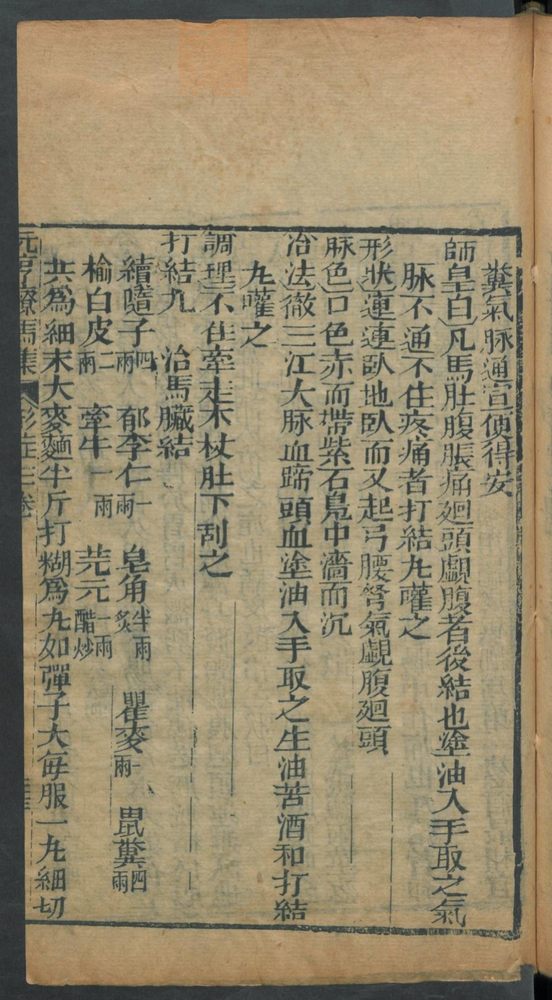 糞氣脉通宣便得安
師皇曰凡馬肚腹脹痛廻頭覰腹者後結也塗油入手取之氣
脉不通不住疼痛者打結九嚾之
形狀連連臥地臥而又起弓腰弩氣覰腹廻頭
脉色口色赤而帶紫石鳬中濇而沉
治法徹三江大脉血蹄頭血塗油入手取之生油苦酒和打結
九嚾之
調理不住牽走木杖肚下刮之
打結九 治馬臟結
續隨子四兩 郁李仁一兩 皂角半兩炙 瞿麥一兩 鼠糞四兩
榆白皮二兩 牽牛一兩 芫元一兩醋炒
共為細末大麥麵半斤打糊為九如彈子大每服一九細切
元亨療馬集 卷